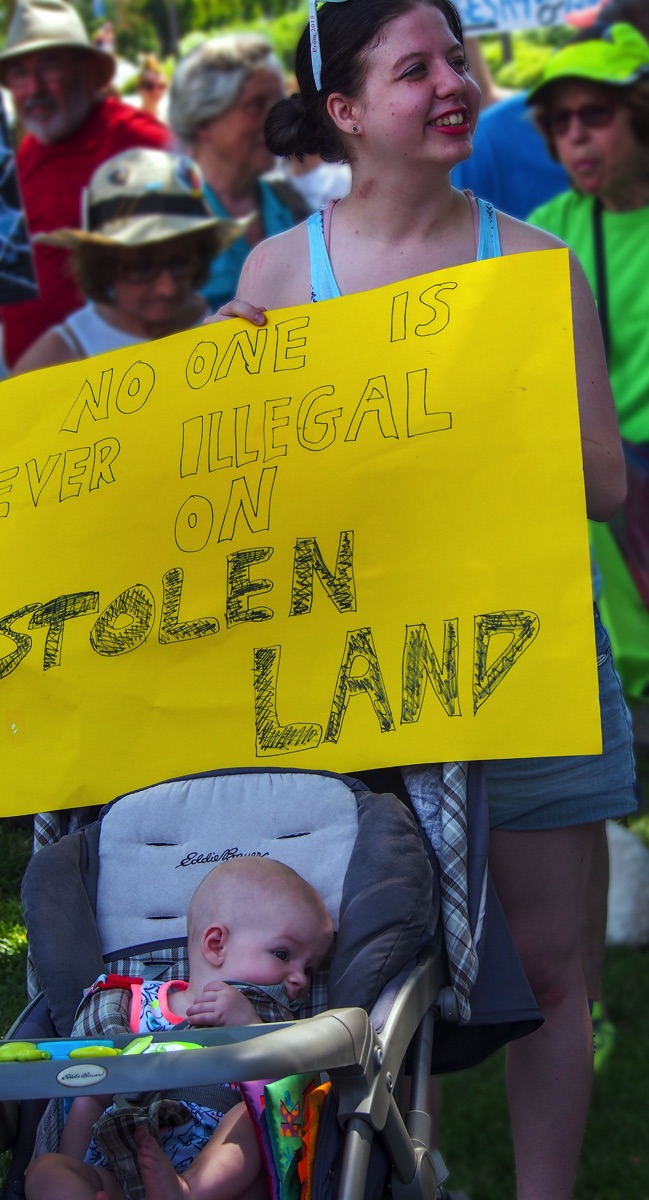 NO ONE IS
EVER ILLEGAL
ON
STOLEN
LAND
Eddie Bauer
Eddie Bauer